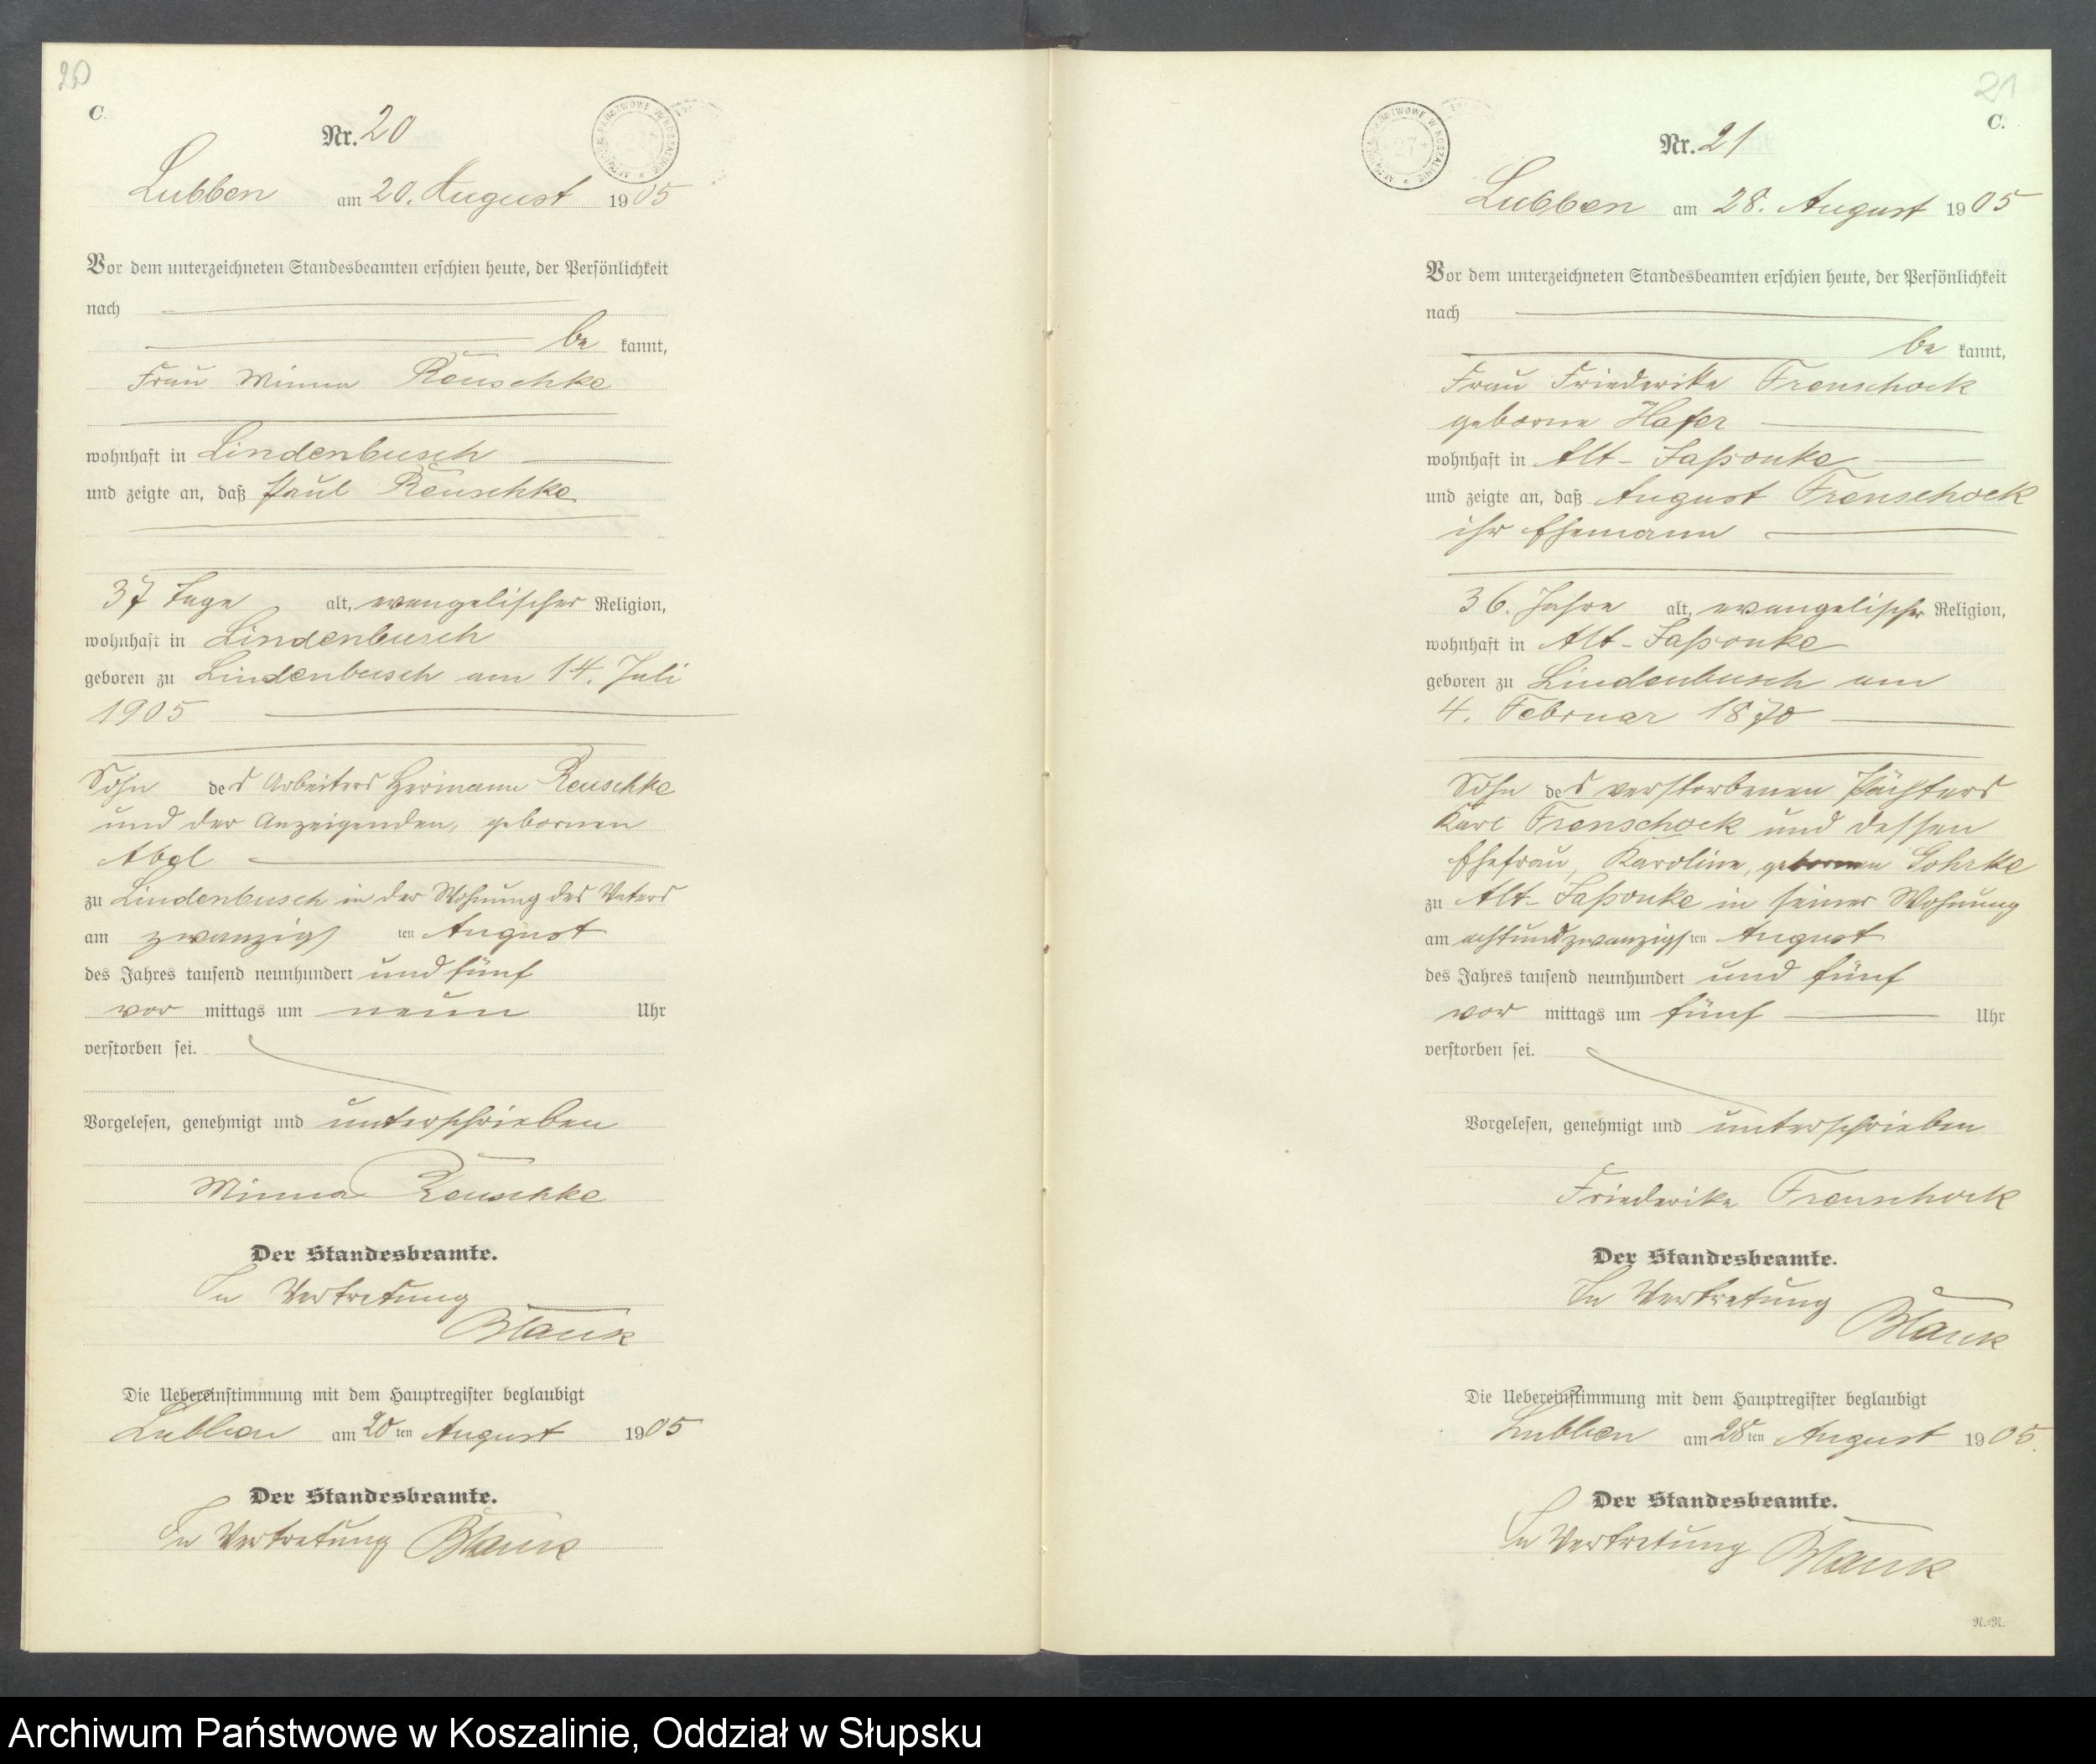 20
C.
Nr. 20
Lubben am 20. August 1905
Vor dem unterzeichneten Standesbeamten erschien heute, der Persönlichkeit
nach
be kannt,
Frau Minna Reuschke
wohnhaft in Lindenbusch
und zeigte an, daß Paul Reuschke
37 Tage alt, evangelischer Religion,
wohnhaft in Lindenbusch
geboren zu Lindenbusch am 14. Juli
1905
Sohn des Arbeiters Hermann Reuschke
und der Anzeigenden, gebornen
Abel
zu Lindenbusch in der Wohnung des Vaters
am zwanzigsten August
des Jahres tausend neunhundert und fünf
vor mittags um neun Uhr
verstorben sei.
Vorgelesen, genehmigt und unterschrieben
Minna Reuschke
Der Standesbeamte.
In Vertretung
Blauk
Die Uebereinstimmung mit dem Hauptregister beglaubigt
Lubben am 20ten August 1905
Der Standesbeamte.
In Vertretung Blauk
21
C.
ARCHIWUM PAŃSTWOWE W KOSZALINIE
27
Nr. 21
Lubben am 28. August 1905
Vor dem unterzeichneten Standesbeamten erschien heute, der Persönlichkeit
nach
be kannt,
Frau Friederike Trenschock
geborne Hafer
wohnhaft in Alt-Jaßonke
und zeigte an, daß August Trenschock
ihr Ehemann
36. Jahre alt, evangelischer Religion,
wohnhaft in Alt-Jaßonke
geboren zu Lindenbusch am
4. Februar 1870
Sohn des verstorbenen Pächters
Karl Trenschock und dessen
Ehefrau, Karoline, gebornen Gohrke
zu Alt-Jaßonke in seiner Wohnung
am achtundzwanzigsten August
des Jahres tausend neunhundert und fünf
vor mittags um fünf Uhr
verstorben sei.
Vorgelesen, genehmigt und unterschrieben
Friederike Trenschock
Der Standesbeamte.
In Vertretung
Blauk
Die Uebereinstimmung mit dem Hauptregister beglaubigt
Lubben am 28ten August 1905.
Der Standesbeamte.
In Vertretung Blauk
N.=N.
Archiwum Państwowe w Koszalinie, Oddział w Słupsku